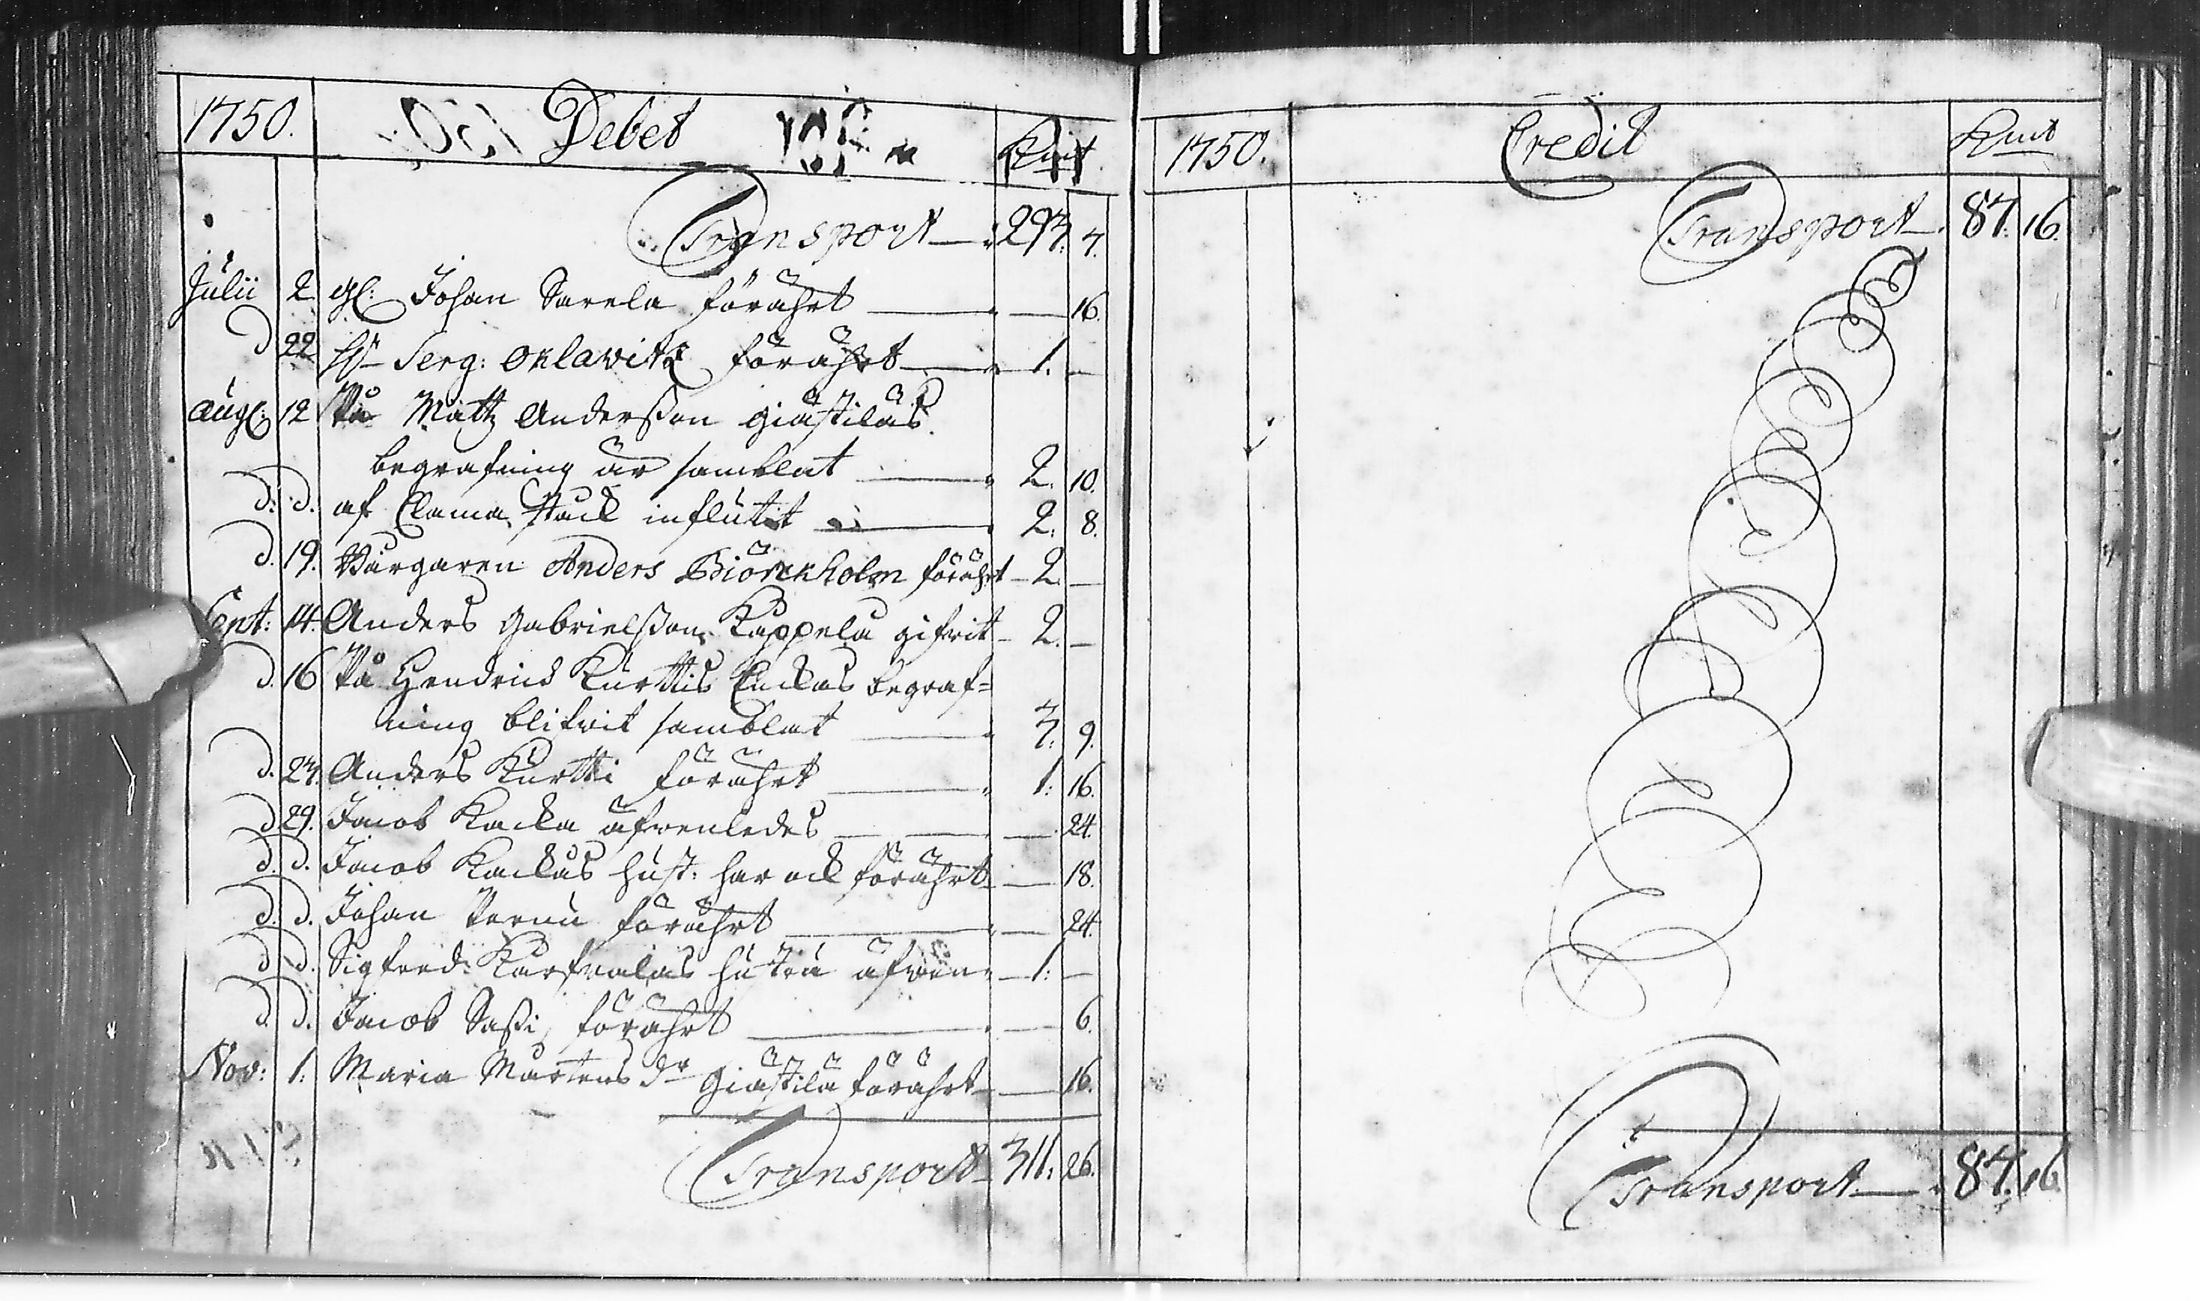 1750. Debet Kmt
Transport — 293. 7.
Julii 2. gl: Johan Sarela förährt — 16.
d 22 Hr Serg: Oklavitz förährt — 1. —
Augl: 12 På Mattz Anderßon Giästiläs
begrafning är samblat — 2. 10.
d. d. af Clama Stack influtit — 2. 8.
d. 19. Burgaren Anders Biörckholm förährt — 2. —
Sept: 14. Anders Gabrielßon Kappelu gifvit — 2. —
d. 16 På Hendrich Kurttis Enckas begraf=
ning blifvit samblat — 3. 9.
d. 23. Anders Kurtti förährt — 1: 16.
d 29. Jacob Kacka äfvenledes — 24.
d. d. Jacob Kackas hust: har ock förährt — 18.
d. d. Johan Pernu förährt — 24.
d d. Sigfred Karfvalas hustru äfven — 1: —
d. d. Jacob Saßi förährt — 6.
Nov: 1: Maria Mårtens dr Giästilä förährt — 16.
Transport 311: 26.
1750. Credit Kmt
Transport — 87. 16.
Transport — 87. 16.